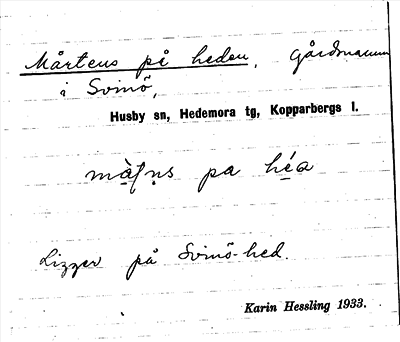 Mårtens på heden, gårdnamn
i Svinö,
Husby sn, Hedemora tg, Kopparbergs l.
pa héa
Ligger på Svinö-hed.
Karin Hessling 1933.